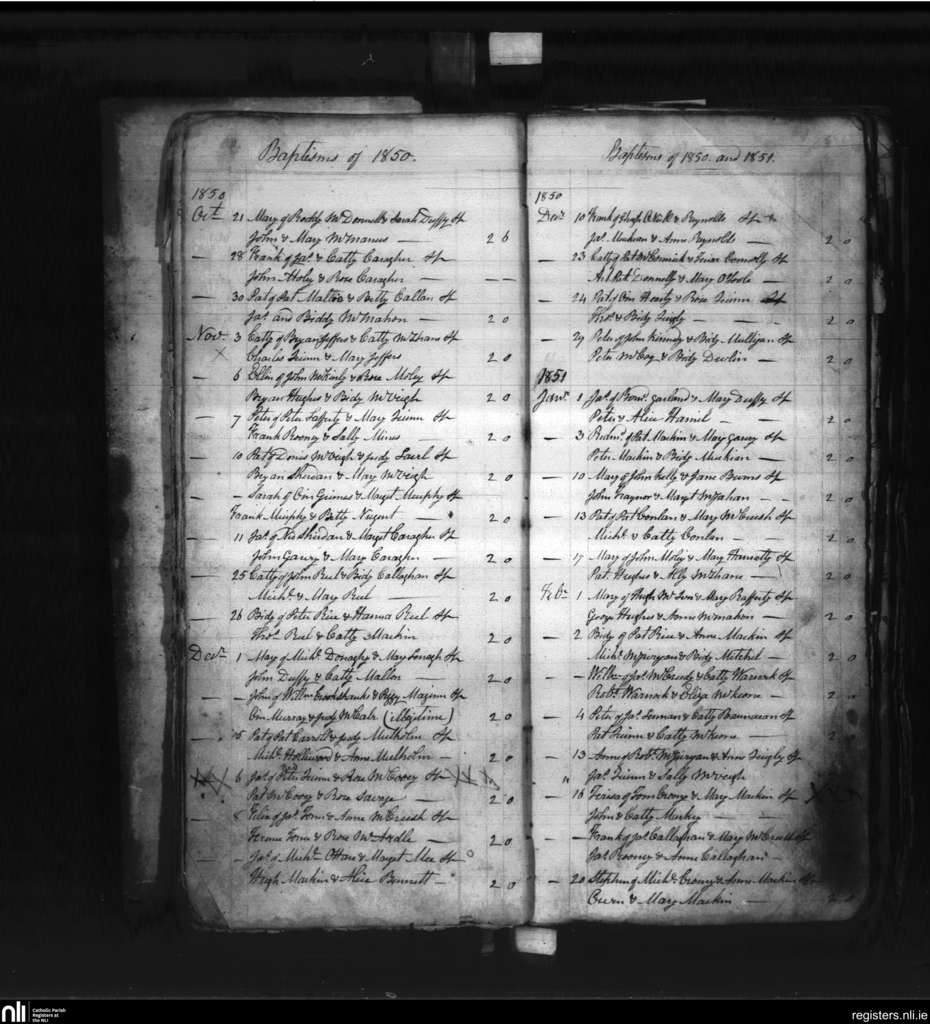 Baptisms of 1850.
1850
Oct 21 Mary of Roddy McDonnell & Sarah Duffy Sp
John & Mary McManus — 2 6
— 28 Frank of Jas. & Catty Caragher Sp
John Holy & Rose Caragher — — —
— 30 Pat of Pat Mallon & Betty Callan Sp
Jas. and Biddy McMahon — 2 0
Nov. 3 Catty of Bryan Jeffers & Catty McShane Sp
Charles Quinn & Mary Jeffers 2 0
— 6 Ellin of John McKinly & Rose Moley Sp
Bryan Hughes & Bidy McVeigh 2 0
— 7 Peter of Peter Lafferty & Mary Quinn Sp
Frank Rooney & Sally Mines 2 0
— 10 Pat of Denis McVeigh & Judy Sp
Bryan Sheridan & Mary McVeigh 2 0
— — Sarah of Oin Grimes & Margt. Murphy Sp
Frank Murphy & Betty Nugent — 2 0
— 11 Jas. of Nis Shridan & Margt Caragher Sp
John Garvy & Mary Caragher — 2 0
— 25 Catty of John Reel & Bidy Callaghan Sp
Michl. & Mary Reel — 2 0
26 Bidy of Peter Rice & Hanna Reel Sp
Thos. Reel & Catty Mackin 2 0
Decr. 1 Mary of Michl. Donaghy & Mary Sp
John Duffy & Catty Mallon — 2 0
— — John of Willm Crookshanks & Peggy Sp
Oin Murray & Judy McCabe (illegitime) 2 0
— 5 Pat of Pat Carroll & Judy Mulholm Sp
Michl. Hollywood & Anne Mulholm — 2 0
6 Jas. of Peter Quinn & Rose McCovey Sp
Pat McCovey & Rose Savage — 2 0
— 8 of Jas. & Anne McCreesh Sp
& Rose McArdle — 2 0
— — Jas. of Michl. OHare & Margt. Mee Sp
Hugh Mackin & Alice Bennett — 2 0
Baptisms of 1850. and 1851.
1850
Decr. 10 Frank of Hugh & Reynolds Sp
Jas. & Anne Reynolds — 2 0
— 23 Catty of Pat McCormick & Connolly Sp
Donnelly & Mary OToole — — —
— 24 Pat of Oin Hearty & Rose Quinn Sp
Thos. & Bidy — 2 0
— 29 Peter of John Kinney & Bidy Mulligan Sp
Peter McCoy & Bidy Devlin — 2 0
1851
Jany. 1 Jas. of Garland & Mary Duffy Sp
Peter & Alice Hamil — — 2 0
— 3 Redm. of Pat Mackin & Mary Garvy Sp
Peter Mackin & Bidy — 2 0
— 10 Mary of John Kelly & Jane Burns Sp
John Traynor & Margt — 2 0
— 13 Pat of Pat Conlan & Mary McCreesh Sp
Michl. & Catty Conlan — 2 0
— 17 Mary of John Moly & Mary Sp
Pat. Hughes & Ally McShane — 2 0
Feby. 1 Mary of Hugh & Mary Rafferty Sp
George Hughes & Anne McMahon — 2 0
— 2 Bidy of Pat Rice & Anne Mackin Sp
Michl. & Bidy Mitchel — 2 0
— — Willm. of Jas. & Catty Warnock Sp
Robt. Warnock & Eliza McKeone — 2 0
— 4 Peter of Jas. & Catty Sp
Pat Quinn & Catty McKeone — 2 0
— 13 Anne of Robt. & Ann Sp
Jas. Quinn & Sally McVeigh
— 16 Teresa of Tom & Mary Mackin Sp
John & Catty —
— — Frank of Jas. Callaghan & Mary McCreesh Sp
Jas. Rooney & Anne Callaghan —
— 20 Stephen of Michl. & Anne Mackin Sp
Owen & Mary Mackin —
nli
Catholic Parish
Registers at
the NLI
registers.nli.ie